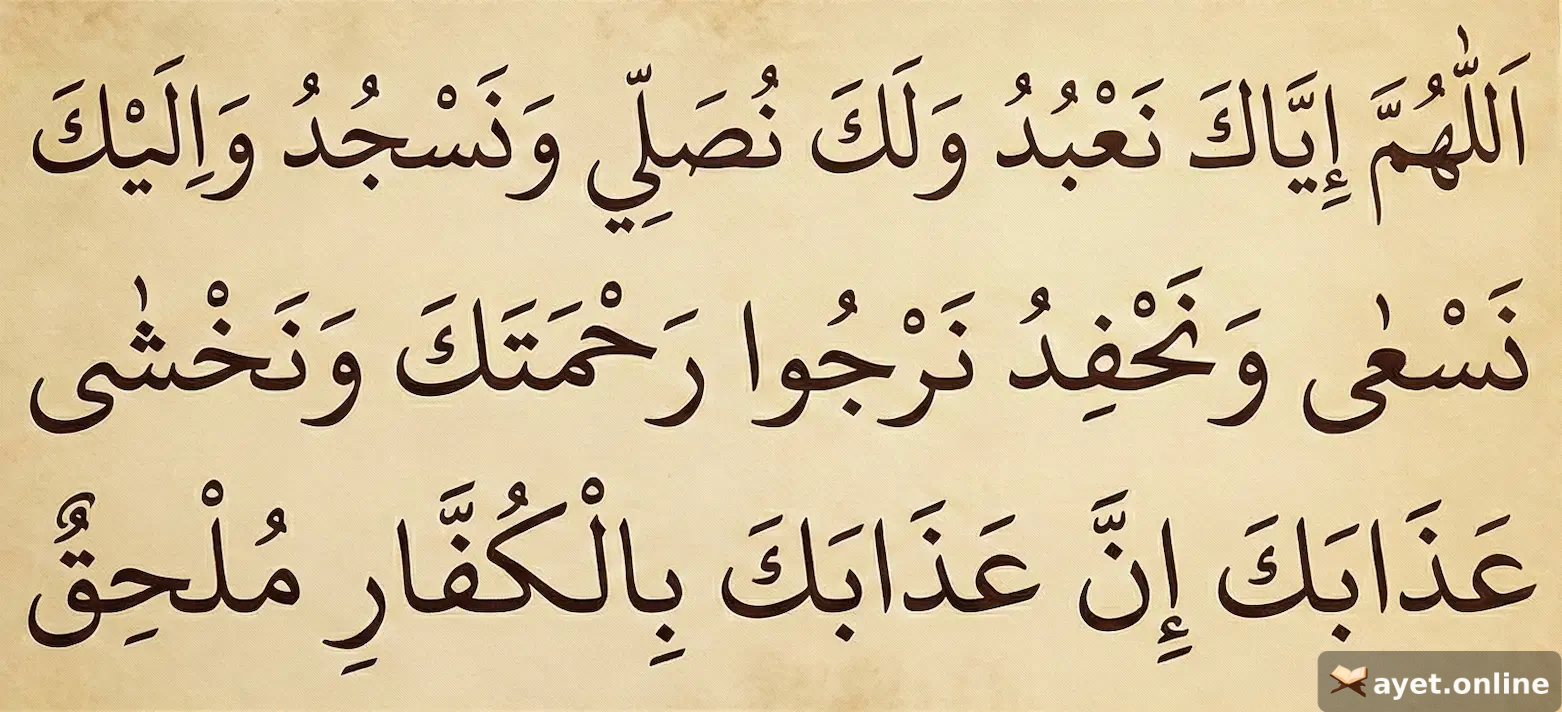 اَللّٰهُمَّ إِيَّاكَ نَعْبُدُ وَلَكَ نُصَلِّي وَنَسْجُدُ وَاِلَيْكَ
نَسْعٰى وَنَحْفِدُ نَرْجُوا رَحْمَتَكَ وَنَخْشٰى
عَذَابَكَ إِنَّ عَذَابَكَ بِالْكُفَّارِ مُلْحِقٌ
ayet.online